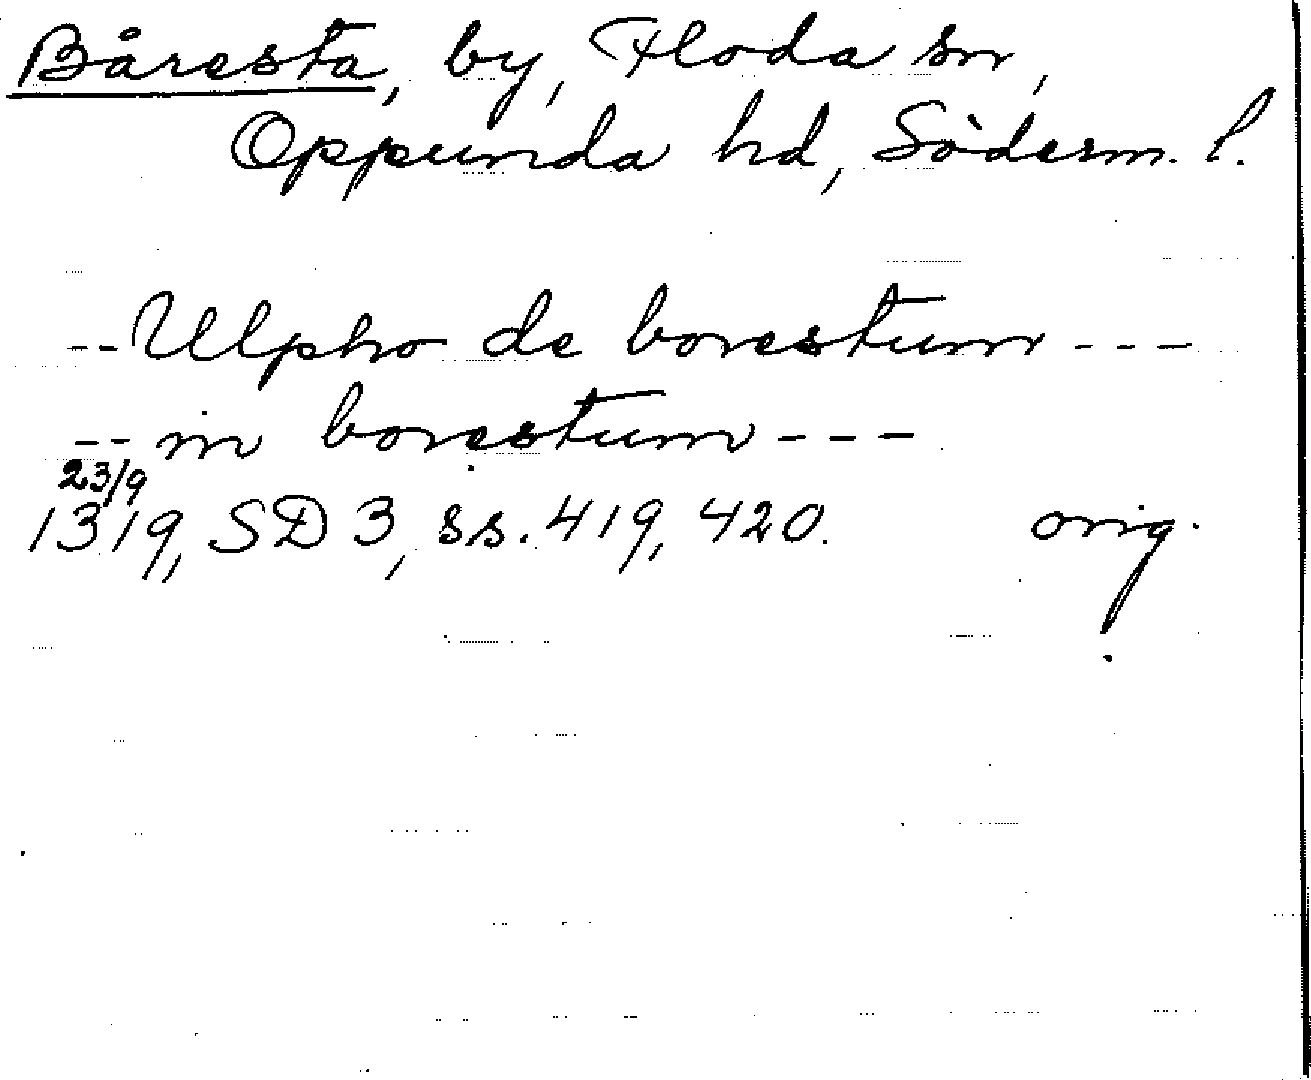 Båresta, by, Floda sn,
Oppunda hd, Söderm. l.
-- Ulpho de borestum ---
-- in borestum ---
23/9
1319, SD 3, ss. 419, 420. orig.